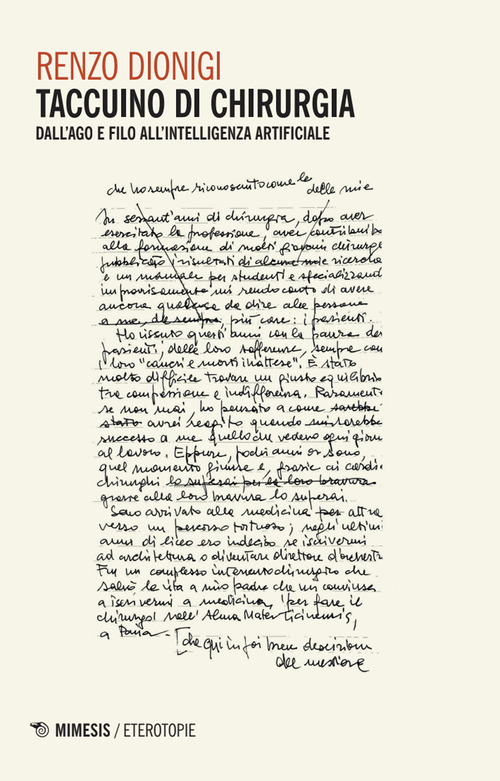 RENZO DIONIGI
TACCUINO DI CHIRURGIA
DALL'AGO E FILO ALL'INTELLIGENZA ARTIFICIALE
che ho sempre riconosciuto come le delle mie
In sessant'anni di chirurgia, dopo aver
esercitato la professione, aver contribuito
alla formazione di molti giovani chirurghi
pubblicato i risultati di alcune mie ricerche
e un manuale per studenti e specializzandi
improvvisamente mi rendo conto di avere
ancora qualcosa da dire alle persone
a me, da sempre, più care: i pazienti.
Ho vissuto questi anni con la paura dei
pazienti, delle loro sofferenze, sempre con
i loro "cancri e morti inattese". È stato
molto difficile trovare un giusto equilibrio
tra compassione e indifferenza. Raramente
se non mai, ho pensato a come sarebbe
stato avrei reagito quando mi sarebbe
successo a me quello che vedevo ogni giorno
al lavoro. Eppure, pochi anni or sono,
quel momento giunse e, grazie ai cardio
chirurghi lo superai per la loro bravura
grazie alla loro bravura lo superai.
Sono arrivato alla medicina per attra
verso un percorso tortuoso; negli ultimi
anni di liceo ero indeciso se iscrivermi
ad architettura o diventare direttore d'orchestra
Fu un complesso intervento chirurgico che
salvò la vita a mio padre che mi convinse
a iscrivermi a medicina, per fare il
chirurgo! nell'Alma Mater Ticinensis,
a Pavia. [che qui in poi
del mestiere
MIMESIS / ETEROTOPIE